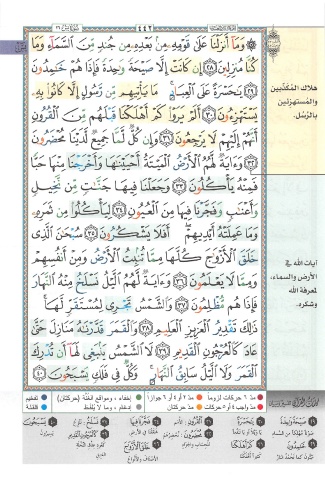 ٤٤٢
۞ وَمَآ أَنزَلْنَا عَلَىٰ قَوْمِهِۦ مِنۢ بَعْدِهِۦ مِن جُندٍ مِّنَ ٱلسَّمَآءِ وَمَا
كُنَّا مُنزِلِينَ ٢٨ إِن كَانَتْ إِلَّا صَيْحَةً وَٰحِدَةً فَإِذَا هُمْ خَٰمِدُونَ
٢٩ يَٰحَسْرَةً عَلَى ٱلْعِبَادِ مَا يَأْتِيهِم مِّن رَّسُولٍ إِلَّا كَانُوا۟ بِهِۦ
يَسْتَهْزِءُونَ ٣٠ أَلَمْ يَرَوْا۟ كَمْ أَهْلَكْنَا قَبْلَهُم مِّنَ ٱلْقُرُونِ
أَنَّهُمْ إِلَيْهِمْ لَا يَرْجِعُونَ ٣١ وَإِن كُلٌّ لَّمَّا جَمِيعٌ لَّدَيْنَا مُحْضَرُونَ
٣٢ وَءَايَةٌ لَّهُمُ ٱلْأَرْضُ ٱلْمَيْتَةُ أَحْيَيْنَٰهَا وَأَخْرَجْنَا مِنْهَا حَبًّا
فَمِنْهُ يَأْكُلُونَ ٣٣ وَجَعَلْنَا فِيهَا جَنَّٰتٍ مِّن نَّخِيلٍ
وَأَعْنَٰبٍ وَفَجَّرْنَا فِيهَا مِنَ ٱلْعُيُونِ ٣٤ لِيَأْكُلُوا۟ مِن ثَمَرِهِۦ
وَمَا عَمِلَتْهُ أَيْدِيهِمْ أَفَلَا يَشْكُرُونَ ٣٥ سُبْحَٰنَ ٱلَّذِى
خَلَقَ ٱلْأَزْوَٰجَ كُلَّهَا مِمَّا تُنۢبِتُ ٱلْأَرْضُ وَمِنْ أَنفُسِهِمْ
وَمِمَّا لَا يَعْلَمُونَ ٣٦ وَءَايَةٌ لَّهُمُ ٱلَّيْلُ نَسْلَخُ مِنْهُ ٱلنَّهَارَ
فَإِذَا هُم مُّظْلِمُونَ ٣٧ وَٱلشَّمْسُ تَجْرِى لِمُسْتَقَرٍّ لَّهَا
ذَٰلِكَ تَقْدِيرُ ٱلْعَزِيزِ ٱلْعَلِيمِ ٣٨ وَٱلْقَمَرَ قَدَّرْنَٰهُ مَنَازِلَ حَتَّىٰ
عَادَ كَٱلْعُرْجُونِ ٱلْقَدِيمِ ٣٩ لَا ٱلشَّمْسُ يَنۢبَغِى لَهَآ أَن تُدْرِكَ
ٱلْقَمَرَ وَلَا ٱلَّيْلُ سَابِقُ ٱلنَّهَارِ وَكُلٌّ فِى فَلَكٍ يَسْبَحُونَ ٤٠
هلاك المكذّبين
والمستهزئين
بالرّسل.
آيات الله في
الأرض والسماء،
لمعرفة الله
وشكره.
مدّ ٦ حركات لزوماً مدّ ٢ أو ٤ أو ٦ جوازاً إخفاء، ومواقع الغُنَّة (حركتان) تفخيم
مدّ واجب ٤ أو ٥ حركات مدّ حركتان إدغام، وما لا يُلفَظ قلقلة